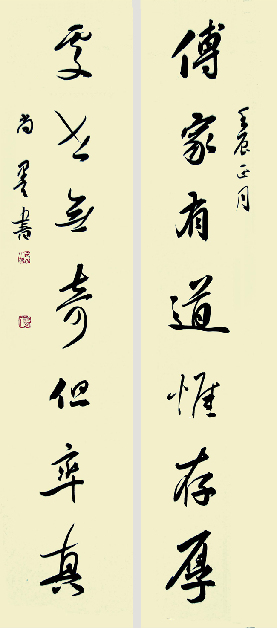 壬辰正月
傅家有道惟存厚
处世無奇但率真
尚墨书